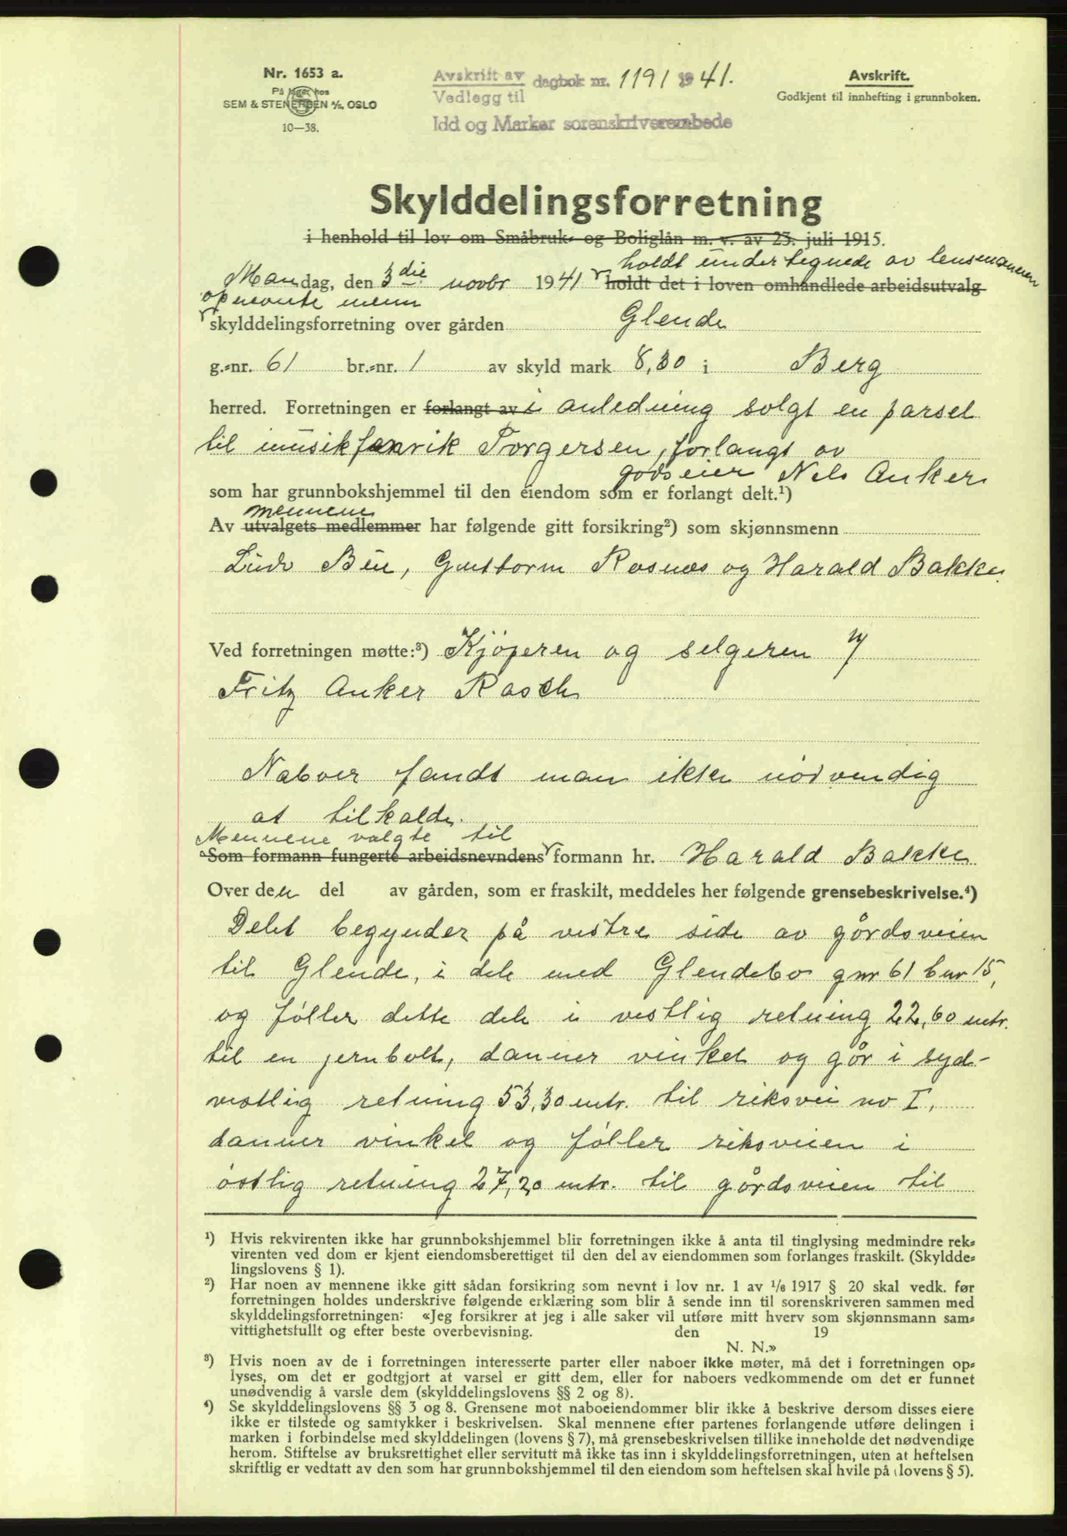 Nr. 1653 a.
På lager hos
SEM & STENERSEN A/S, OSLO
10—38.
Avskrift av dagbok nr. 1191 1941.
Vedlegg til
Idd og Marker sorenskriverembede
Avskrift.
Godkjent til innhefting i grunnboken.
Skylddelingsforretning
i henhold til lov om Småbruk- og Boliglån m. v. av 23. juli 1915.
holdt undertegnede av lensmannen
Mandag, den 3die novbr 1941 holdt det i loven omhandlede arbeidsutvalg
opnevnte menn
skylddelingsforretning over gården Glende
g.-nr. 61 br.-nr. 1 av skyld mark 8,30 i Berg
herred. Forretningen er forlangt av i anledning solgt en parsel
til musikfanrik Torgersen, forlangt av
godseier Nils Anker
som har grunnbokshjemmel til den eiendom som er forlangt delt.¹)
mennene
Av utvalgets medlemmer har følgende gitt forsikring²) som skjønnsmenn
Ludv Bui, Guttorm Rosnæs og Harald Bakke
Ved forretningen møtte:³) Kjøperen og selgeren v/
Fritz Anker Rasch
Naboer fandt man ikke nødvendig
at tilkalde.
Mennene valgte til
Som formann fungerte arbeidsnevndens formann hr. Harald Bakke
Over den del av gården, som er fraskilt, meddeles her følgende grensebeskrivelse.⁴)
Delet begynder på vestre side av gårdsveien
til Glende, i dele med Glendebo gnr 61 bnr 15,
og føller dette dele i vestlig retning 22,60 mtr.
til en jernbolt, danner vinkel og går i syd-
vestlig retning 53,30 mtr. til riksvei no I,
danner vinkel og føller riksveien i
østlig retning 27,20 mtr. til gårdsveien til
¹) Hvis rekvirenten ikke har grunnbokshjemmel blir forretningen ikke å anta til tinglysing medmindre rek-
virenten ved dom er kjent eiendomsberettiget til den del av eiendommen som forlanges fraskilt. (Skyldde-
lingslovens § 1).
²) Har noen av mennene ikke gitt sådan forsikring som nevnt i lov nr. 1 av 1/6 1917 § 20 skal vedk. før
forretningen holdes underskrive følgende erklæring som blir å sende inn til sorenskriveren sammen med
skylddelingsforretningen: «Jeg forsikrer at jeg i alle saker vil utføre mitt hverv som skjønnsmann sam-
vittighetsfullt og efter beste overbevisning. den 19
N. N.»
³) Hvis noen av de i forretningen interesserte parter eller naboer ikke møter, må det i forretningen op-
lyses, om det er godtgjort at varsel er gitt dem, eller for naboers vedkommende om det er funnet
unødvendig å varsle dem (skylddelingslovens §§ 2 og 8).
⁴) Se skylddelingslovens §§ 3 og 8. Grensene mot naboeiendommer blir ikke å beskrive dersom disses eiere
ikke er tilstede og samtykker i beskrivelsen. Skal mennene efter partenes forlangende utføre delingen i
marken i forbindelse med skylddelingen (lovens § 7), må grensebeskrivelsen tillike inneholde det nødvendige
herom. Stiftelse av bruksrettighet eller servitutt må ikke tas inn i skylddelingsforretningen, uten at heftelsen
skriftlig er vedtatt av den som har grunnbokshjemmel til den eiendom som heftelsen skal hvile på (lovens § 5).